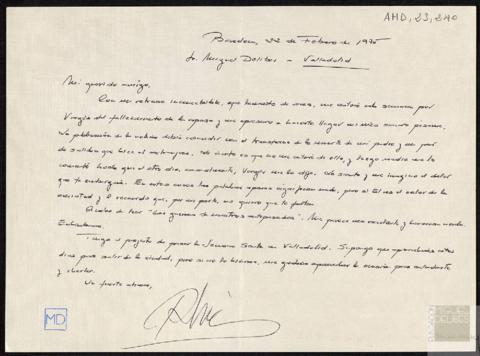 AMD, 23, 240
Barcelona, 22 de Febrero de 1975
Sr. Miguel Delibes - Valladolid
Mi querido amigo:
Con un retraso incomprensible, que lamento de veras, me enteré esta semana por
Vergés del fallecimiento de tu esposa y me apresuro a hacerte llegar mi más sentido pésame.
La publicación de la noticia debió coincidir con el transcurso de la muerte de mi padre y un par
de salidas que hice al extranjero. Lo cierto es que no me enteré de ello, y luego nadie me lo
comentó hasta que el otro día, casualmente, Vergés me lo dijo. Lo siento y me imagino el dolor
que te embargará. En estos casos las palabras apenas significan nada, pero sí tiene el valor de la
amistad y el recuerdo que, por mi parte, no quiero que te falten.
Acabo de leer "Las guerras de nuestros antepasados". Me parece una excelente y hermosa novela.
Enhorabuena.
Tengo el proyecto de pasar la Semana Santa en Valladolid. Supongo que aprovecharás estos
días para salir de la ciudad, pero si no lo hicieras, me gustaría aprovechar la ocasión para saludarte
y charlar.
Un fuerte abrazo,
MD